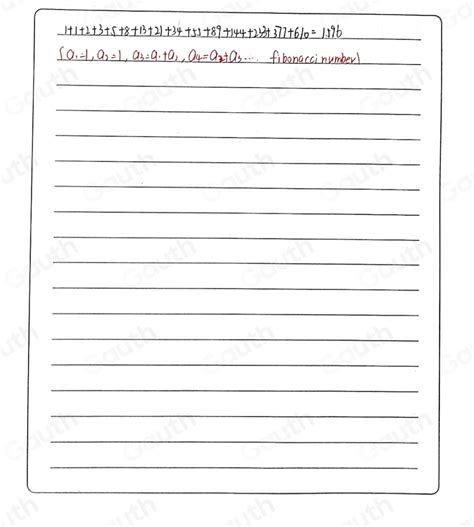 1+1+2+3+5+8+13+21+34+55+89+144+233+377+610=1596
(a₁=1, a₂=1, a₃=a₁+a₂, a₄=a₂+a₃... fibonacci number)
Gauth